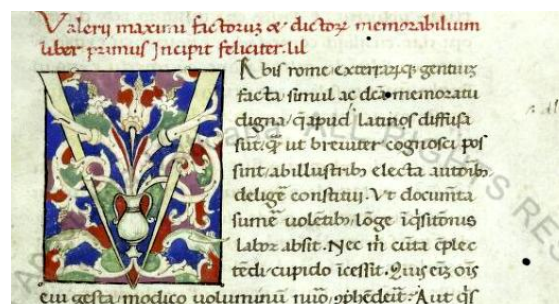 Valerij maximi factoruz & dictoɤ memorabilium
liber primus Incipit feliciter. lil
V Rbis rome exterarūq; gentiuz
facta simul ac dc̄a memoratu
digna / q̄ apud latinos diffusa
sūt / q̄ ut breviter cognosci pos
sint ab illustrib; electa autorib;
deligē constitui. Vt documīta
sumē uolētib; lōge īq̄sitōnis
labor absit. Nec m̄ cūta cōplec
tēdi cupido īcessit. Quis eī ōīs
eui gesta modico uoluminū
ALL RIGHTS RES